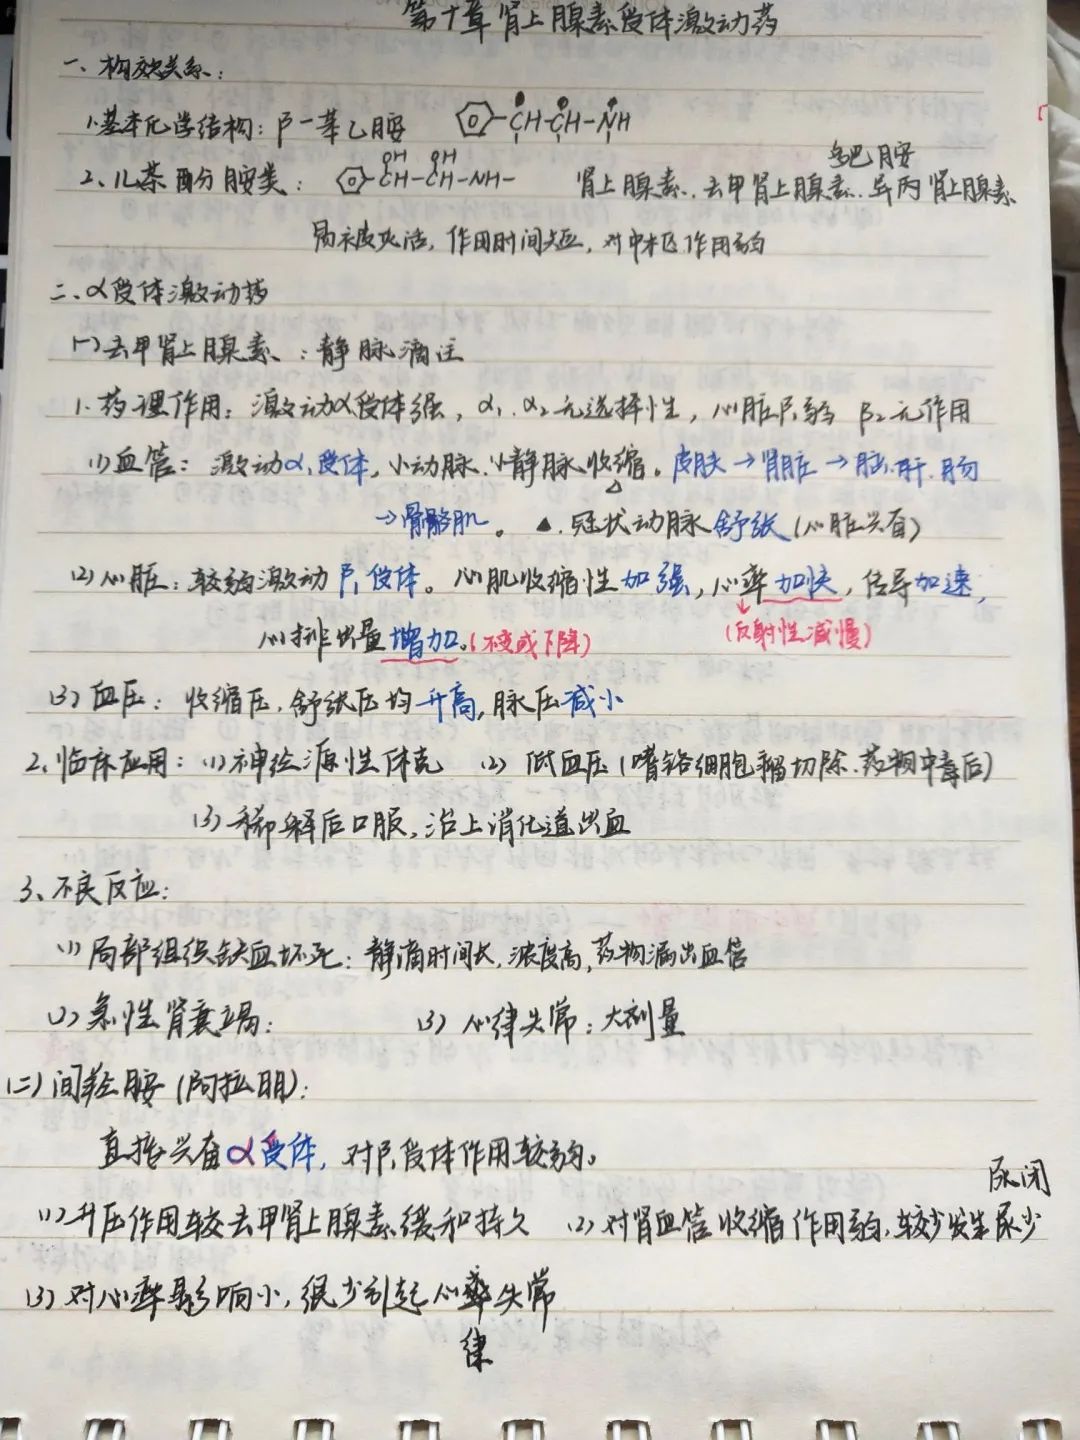 第十章 肾上腺素受体激动药
一、构效关系：
1.基本化学结构：β-苯乙胺 CH-CH-NH
多巴胺
OH OH
2、儿茶酚胺类： CH-CH-NH- 肾上腺素、去甲肾上腺素、异丙肾上腺素
易被灭活，作用时间短，对中枢作用弱
二、α受体激动药
(一)去甲肾上腺素：静脉滴注
1.药理作用：激动α受体强，α₁、α₂无选择性，心脏β₁弱 β₂无作用
(1)血管：激动α₁受体，小动脉、小静脉收缩。皮肤→肾脏→脑、肝、肠
→骨骼肌。▲.冠状动脉舒张(心脏兴奋)
(2)心脏：较弱激动β₁受体。心肌收缩性加强，心率加快，传导加速，
(反射性减慢)
心排出量增加。(不变或下降)
(3)血压：收缩压，舒张压均升高，脉压减小
2、临床应用：(1)神经源性休克 (2)低血压(嗜铬细胞瘤切除、药物中毒后)
(3)稀释后口服，治上消化道出血
3、不良反应：
(1)局部组织缺血坏死：静滴时间长，浓度高，药物漏出血管
(2)急性肾衰竭： (3)心律失常：大剂量
(二)间羟胺(阿拉明)：
直接兴奋α受体，对β₁受体作用较弱。
尿闭
(1)升压作用较去甲肾上腺素缓和持久 (2)对肾血管收缩作用弱，较少发生尿少
(3)对心率影响小，很少引起心率失常
律